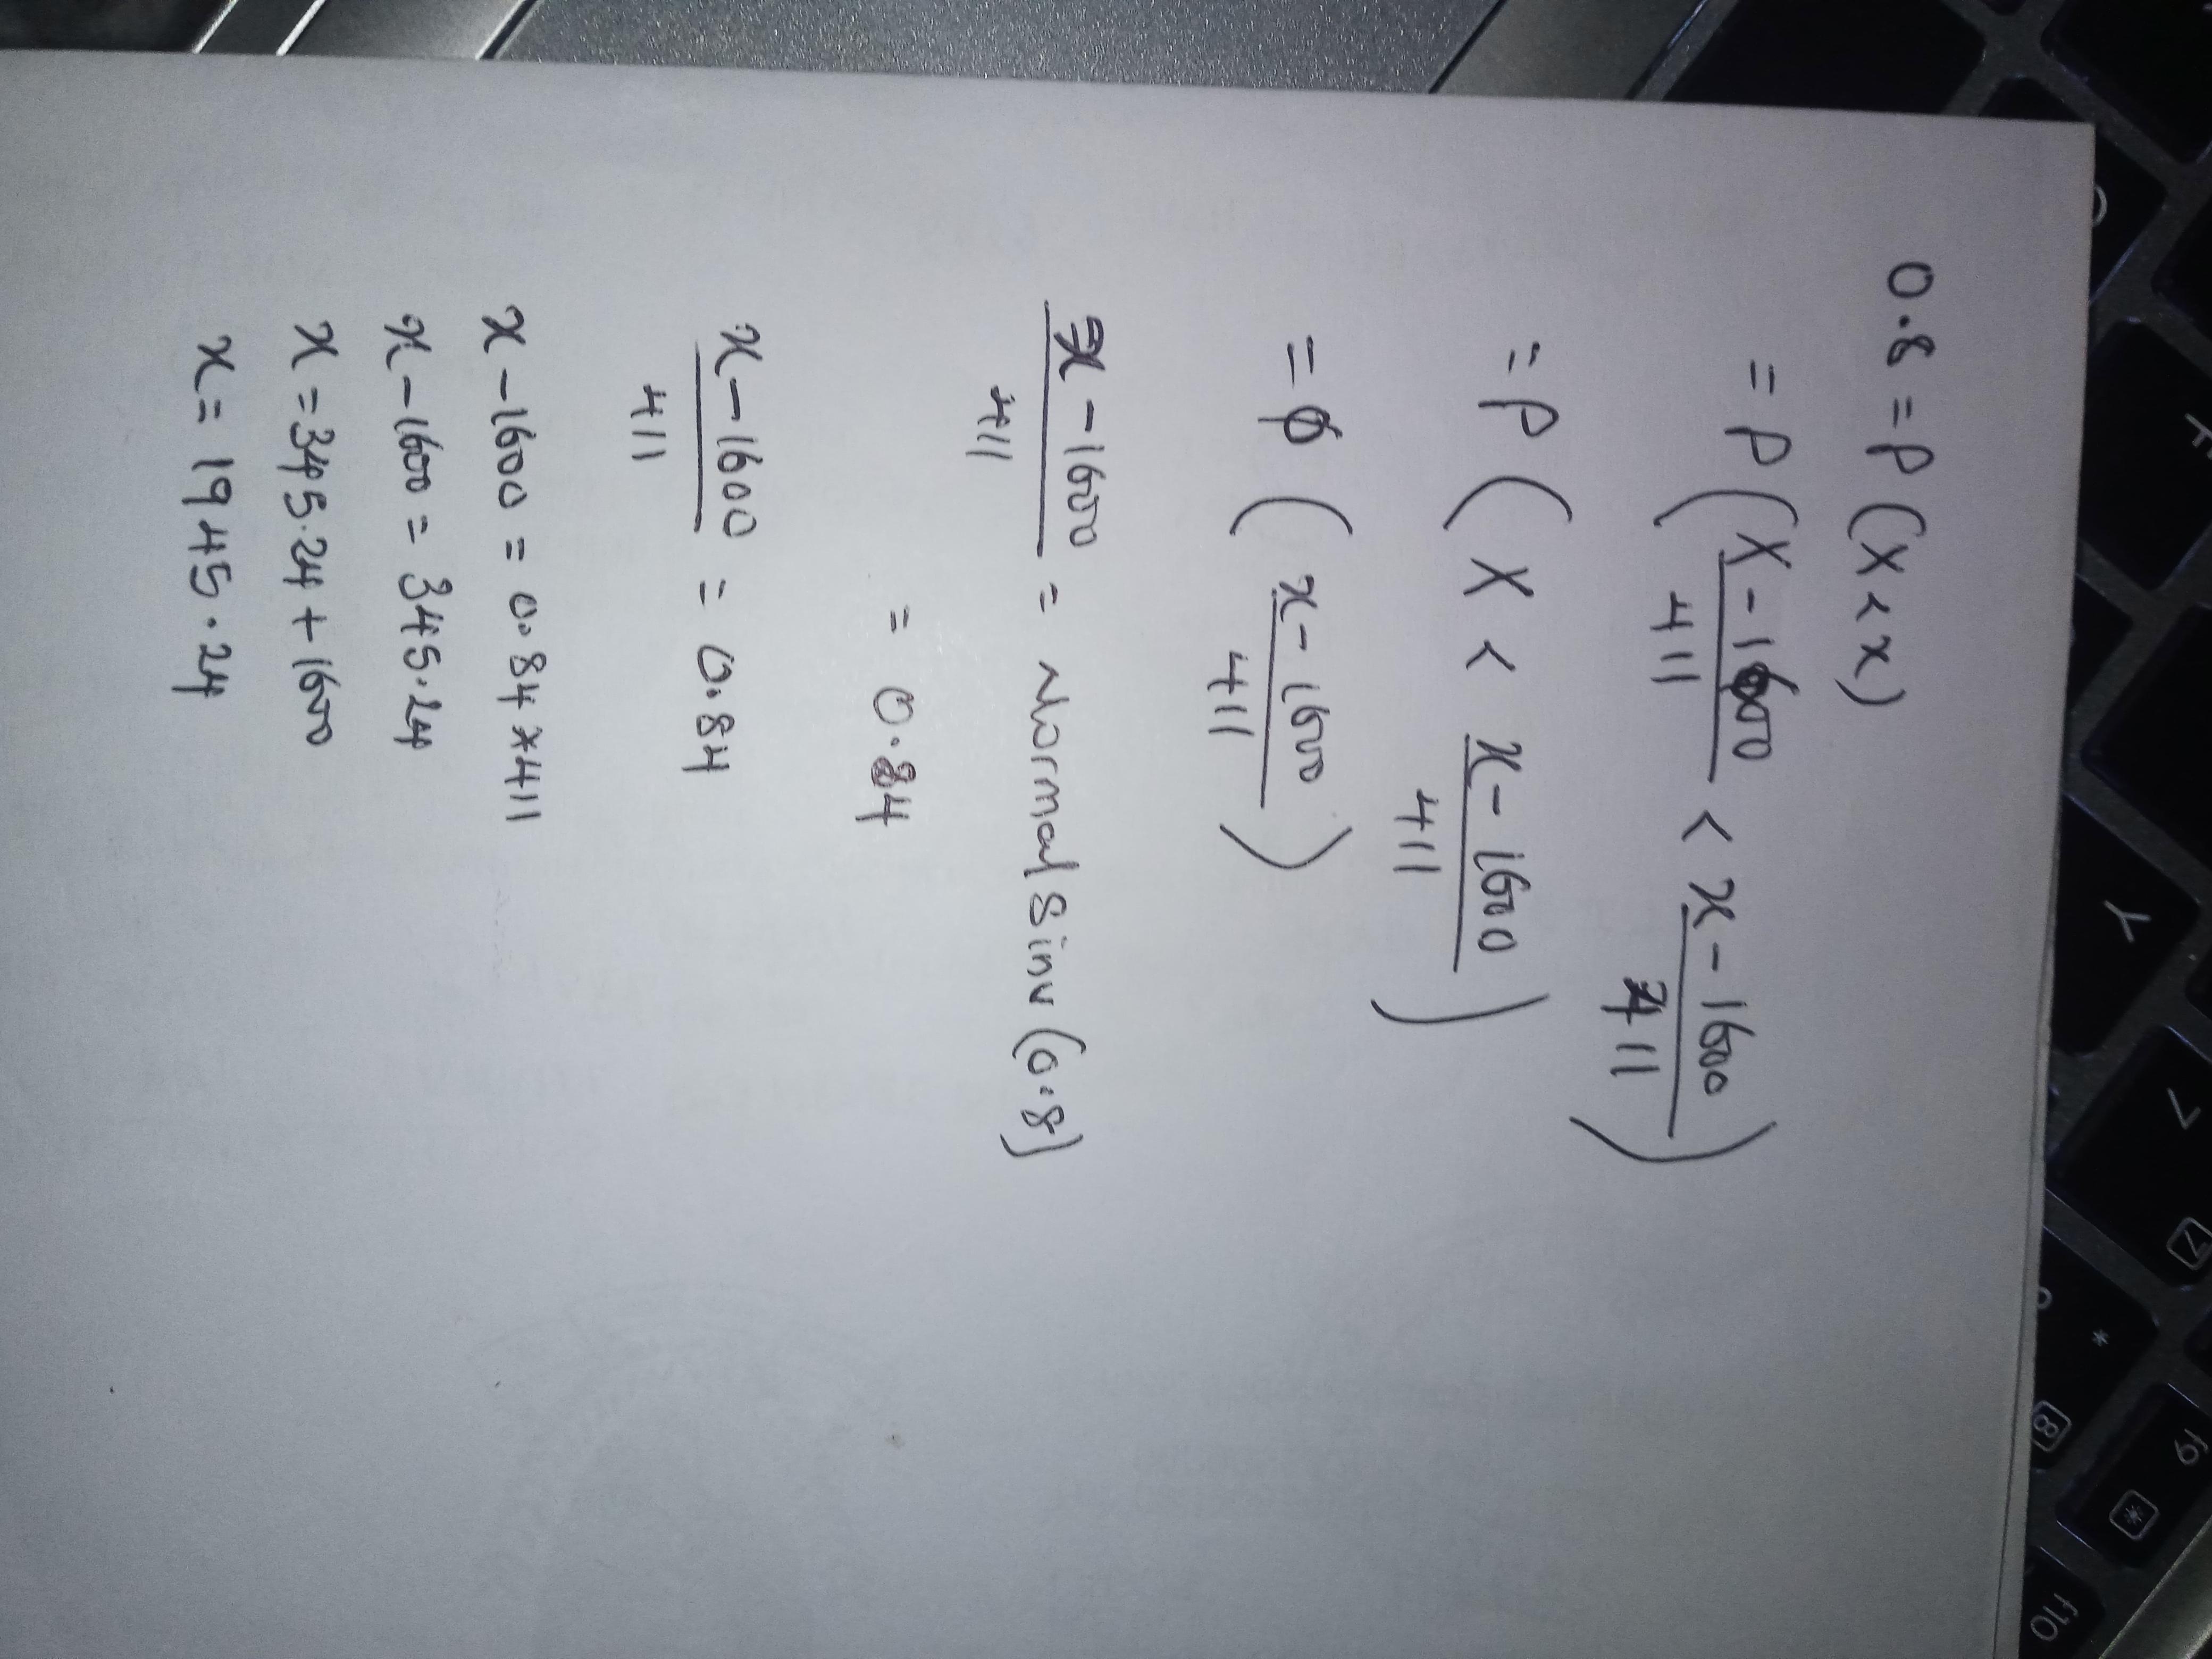 0.8 = P(X < x)
= P(X-1600/411 < x-1600/411)
= P(X < x-1600/411)
= φ(x-1600/411)
x-1600/411 = Normalsinv(0.8)
= 0.84
x-1600/411 = 0.84
x-1600 = 0.84*411
x-1600 = 345.24
x = 345.24 + 1600
x = 1945.24
Y
7
7
*
8
f9
f10